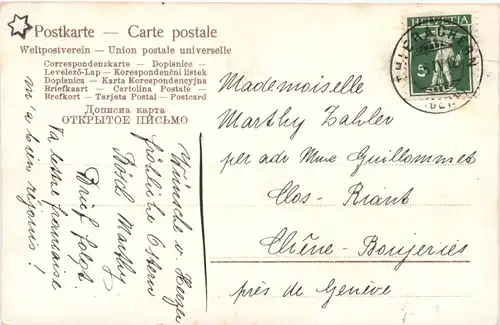 Postkarte — Carte postale
Weltpostverein — Union postale universelle
Correspondenzkarte — Dopisnice —
Levelező-Lap — Korespondenční lístek
Dopisnica — Karta Korespondencyjna
Briefkaart — Cartolina Postale —
Brefkort — Tarjeta Postal — Postcard
Дописна карта
ОТКРЫТОЕ ПИСЬМО
HELVETIA
5
Mademoiselle
Marthy Zahler
per adr Mme Guillommet
Clos-Riant
Chêne-Boujeries
près de Genève
Wünsche v. Herzen
fröhliche Ostern
Marthy
Brief folgt.
Ta lettre française
m'a bien réjouis!